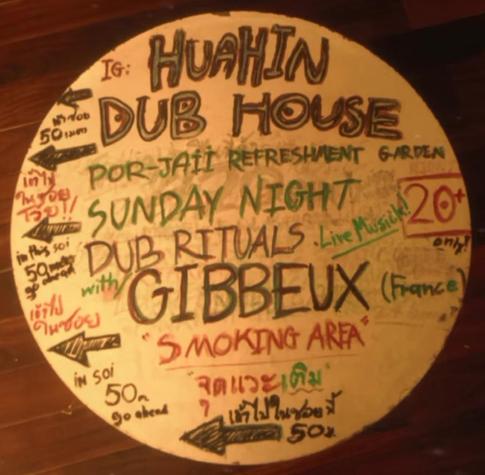 IG: HUAHIN
DUB HOUSE
50 เมตร
POR-JAII REFRESHMENT GARDEN
เข้าไป
ในซอย
SUNDAY NIGHT
20+
only!
DUB RITUALS. Live Musick!
in this soi
50 metr
go ahead
with GIBBEUX (France)
เข้าไป
ในซอย
"SMOKING AREA"
in soi
50m
go ahead
"จุดแวะเติม"
?
เข้าไปในซอยนี้
50m